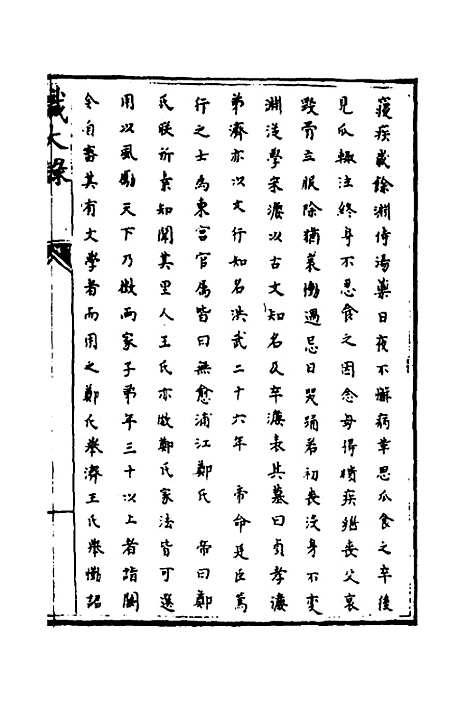 寢疾歲餘淵侍湯藥日夜不懈病革思瓜食之卒後
見瓜輒泣終身不忍食之因念母得瞶疾繼喪父哀
毀骨立服除猶蔬慟遇忌日哭踊若初喪沒身不變
淵從學宋濂以古文知名及卒濂表其墓曰貞孝濂
弟濟亦以文行知名洪武二十六年　帝命廷臣舉
行之士為東宮官屬皆曰無愈浦江鄭氏　帝曰鄭
氏朕所素知聞其里人王氏亦倣鄭氏家法皆可選
用以風勵天下乃徵兩家子弟年三十以上者詣闕
令自舉其有文學者而用之鄭氏舉濟王氏舉懃詔
識大錄